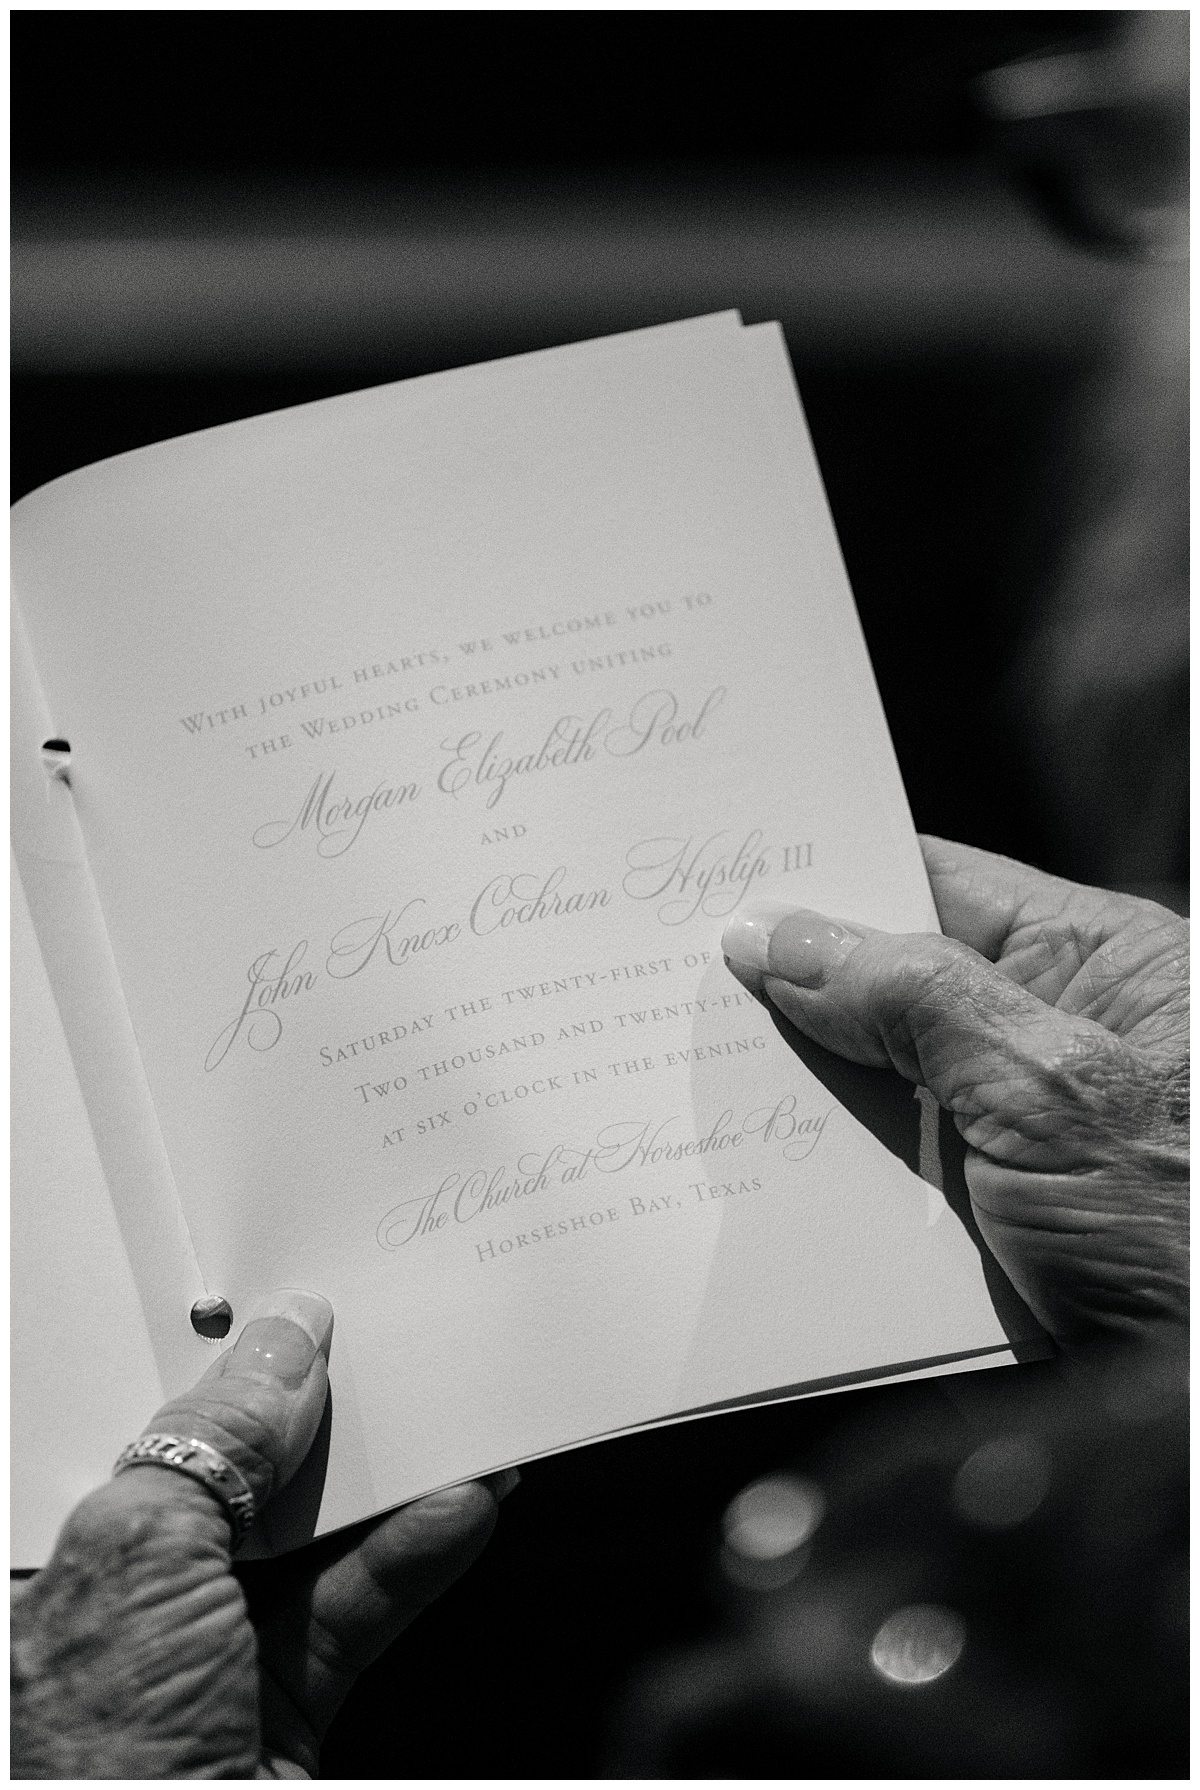 With joyful hearts, we welcome you to
the Wedding Ceremony uniting
Morgan Elizabeth Pool
and
John Knox Cochran Hyslip III
Saturday the twenty-first of
Two thousand and twenty-five
at six o'clock in the evening
The Church at Horseshoe Bay
Horseshoe Bay, Texas